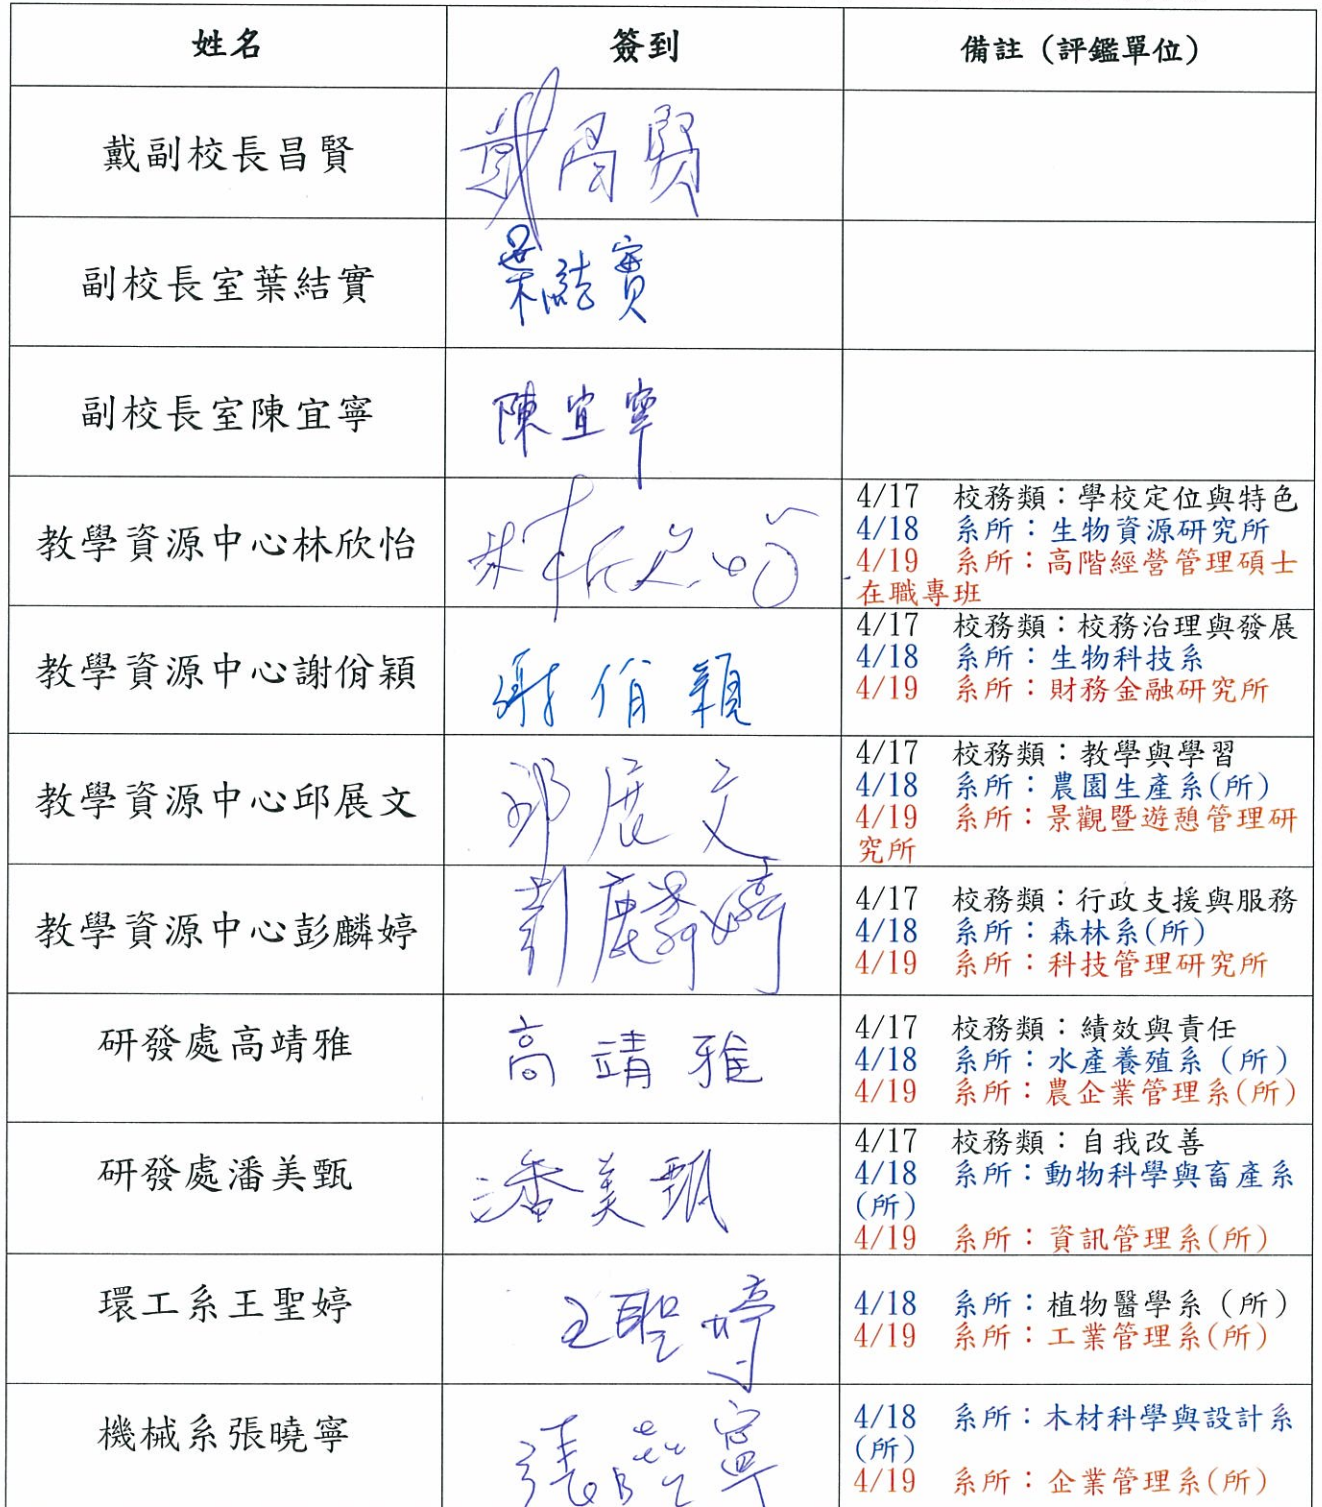 姓名 簽到 備註（評鑑單位）
戴副校長昌賢 戴昌賢
副校長室葉結實 葉結實
副校長室陳宜寧 陳宜寧
教學資源中心林欣怡 林欣怡
4/17 校務類：學校定位與特色
4/18 系所：生物資源研究所
4/19 系所：高階經營管理碩士
在職專班
教學資源中心謝佾穎 謝佾穎
4/17 校務類：校務治理與發展
4/18 系所：生物科技系
4/19 系所：財務金融研究所
教學資源中心邱展文 邱展文
4/17 校務類：教學與學習
4/18 系所：農園生產系(所)
4/19 系所：景觀暨遊憩管理研
究所
教學資源中心彭麟婷 彭麟婷
4/17 校務類：行政支援與服務
4/18 系所：森林系(所)
4/19 系所：科技管理研究所
研發處高靖雅 高靖雅
4/17 校務類：績效與責任
4/18 系所：水產養殖系（所）
4/19 系所：農企業管理系(所)
研發處潘美甄 潘美甄
4/17 校務類：自我改善
4/18 系所：動物科學與畜產系
(所)
4/19 系所：資訊管理系(所)
環工系王聖婷 王聖婷
4/18 系所：植物醫學系（所）
4/19 系所：工業管理系(所)
機械系張曉寧 張曉寧
4/18 系所：木材科學與設計系
(所)
4/19 系所：企業管理系(所)